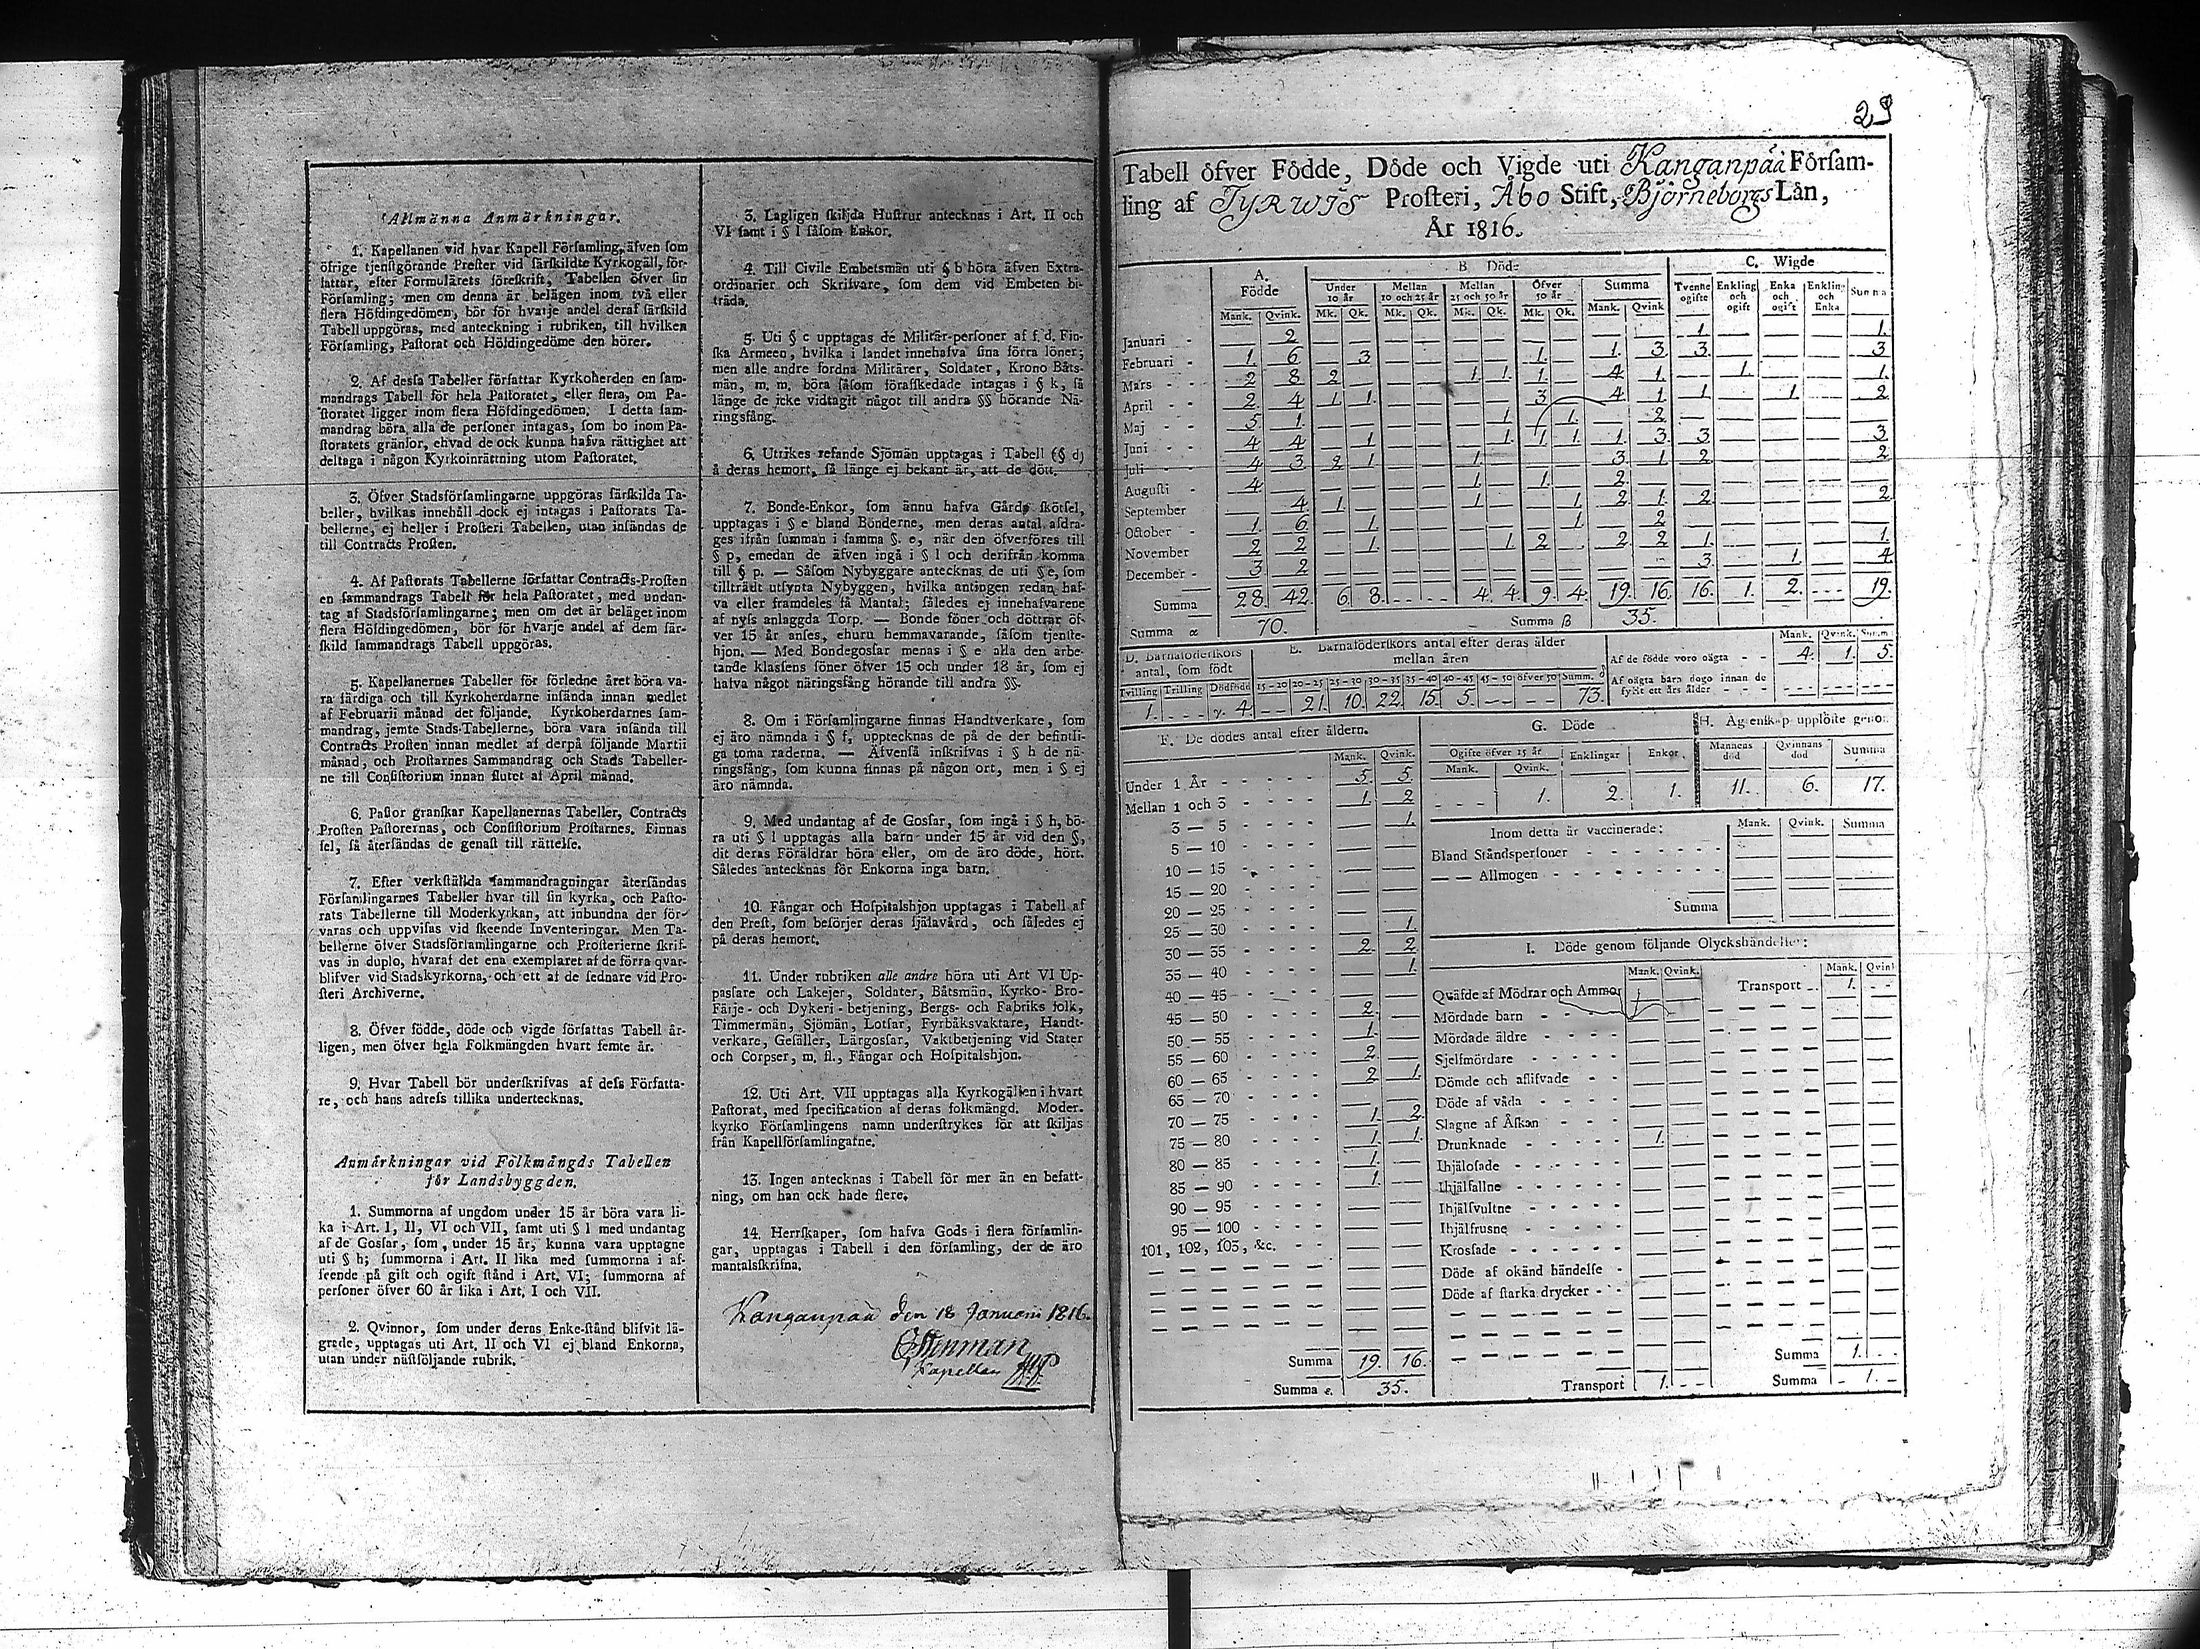 Allmänna Anmärkningar.
1. Kapellanen vid hvar Kapell Förſamling, äfven ſom
öfrige tjenſtgörande Preſter vid ſärſkildte Kyrkogäll, för-
fattar, efter Formulärets föreſkrift, Tabellen öfver ſin
Förſamling; men om denna är belägen inom två eller
flera Höfdingedömen, bör för hvarje andel deraf ſärſkild
Tabell uppgöras, med anteckning i rubriken, till hvilken
Förſamling, Paſtorat och Höfdingedöme den hörer.
2. Af deſsa Tabeller författar Kyrkoherden en ſam-
mandrags Tabell för hela Paſtoratet, eller flera, om Pa-
ſtoratet ligger inom flera Höfdingedömen. I detta ſam-
mandrag böra alla de perſoner intagas, ſom bo inom Pa-
ſtoratets gränſor, ehvad de ock kunna hafva rättighet att
deltaga i någon Kyrkoinrättning utom Paſtoratet.
3. Öfver Stadsförſamlingarne uppgöras ſärſkilda Ta-
beller, hvilkas innehåll dock ej intagas i Paſtorats Ta-
bellerne, ej heller i Proſteri Tabellen, utan inſändas de
till Contracts Proſten.
4. Af Paſtorats Tabellerne författar Contracts-Proſten
en ſammandrags Tabell för hela Paſtoratet, med undan-
tag af Stadsförſamlingarne; men om det är beläget inom
flera Höfdingedömen, bör för hvarje andel af dem ſär-
ſkild ſammandrags Tabell uppgöras.
5. Kapellanernes Tabeller för förledne året böra va-
ra färdiga och till Kyrkoherdarne inſända innan medlet
af Februarii månad det följande. Kyrkoherdarnes ſam-
mandrag, jemte Stads-Tabellerne, böra vara inſända till
Contracts Proſten innan medlet af derpå följande Martii
månad, och Proſtarnes Sammandrag och Stads Tabeller-
ne till Conſiſtorium innan ſlutet af April månad.
6. Paſtor granſkar Kapellanernas Tabeller, Contracts
Proſten Paſtorernas, och Conſiſtorium Proſtarnes. Finnas
fel, ſå återſändas de genaſt till rättelſe.
7. Efter verkſtällda ſammandragningar återſändas
Förſamlingarnes Tabeller hvar till ſin kyrka, och Paſto-
rats Tabellerne till Moderkyrkan, att inbundna der för-
varas och uppviſas vid ſkeende Inventeringar. Men Ta-
bellerne öfver Stadsförſamlingarne och Proſterierne ſkrif-
vas in duplo, hvaraf det ena exemplaret af de förra qvar-
blifver vid Stadskyrkorna, och ett af de ſednare vid Pro-
ſteri Archiverne.
8. Öfver födde, döde och vigde författas Tabell år-
ligen, men öfver hela Folkmängden hvart femte år.
9. Hvar Tabell bör underſkrifvas af deſs Författa-
re, och hans adreſs tillika undertecknas.
Anmärkningar vid Folkmängds Tabellen
för Landsbyggden.
1. Summorna af ungdom under 15 år böra vara li-
ka i Art. I, II, VI och VII, ſamt uti § l med undantag
af de Goſsar, ſom, under 15 år, kunna vara upptagne
uti § h; ſummorna i Art. II lika med ſummorna i af-
ſeende på gift och ogift ſtånd i Art. VI; ſummorna af
perſoner öfver 60 år lika i Art. I och VII.
2. Qvinnor, ſom under deras Enke-ſtånd blifvit lä-
grade, upptagas uti Art. II och VI ej bland Enkorna,
utan under näſtföljande rubrik.
3. Lagligen ſkiljda Huſtrur antecknas i Art. II och
VI ſamt i § l ſåſom Enkor.
4. Till Civile Embetsmän uti § b höra äfven Extra-
ordinarier och Skrifvare, ſom dem vid Embeten bi-
träda.
5. Uti § c upptagas de Militär-perſoner af f. d. Fin-
ſka Armeen, hvilka i landet innehafva ſina förra löner;
men alle andre fordna Militärer, Soldater, Krono Båts-
män, m. m. böra ſåſom förafſkedade intagas i § k, ſå
länge de icke vidtagit något till andra §§ hörande Nä-
ringsfång.
6. Utrikes reſande Sjömän upptagas i Tabell (§ d)
å deras hemort, ſå länge ej bekant är, att de dött.
7. Bonde-Enkor, ſom ännu hafva Gårds ſkötſel,
upptagas i § e bland Bönderne, men deras antal afdra-
ges ifrån ſumman i ſamma §. e, när den öfverföres till
§ p, emedan de äfven ingå i § l och derifrån komma
till § p. — Såſom Nybyggare antecknas de uti § e, ſom
tillträdt utſynta Nybyggen, hvilka antingen redan haf-
va eller framdeles få Mantal; ſåledes ej innehafvarene
af nyſs anlaggda Torp. — Bonde ſöner och döttrar öf-
ver 15 år anſes, ehuru hemmavarande, ſåſom tjenſte-
hjon. — Med Bondegoſsar menas i § e alla den arbe-
tande klaſſens ſöner öfver 15 och under 18 år, ſom ej
hafva något näringsfång hörande till andra §§.
8. Om i Förſamlingarne finnas Handtverkare, ſom
ej äro nämnda i § f, upptecknas de på de der befintli-
ga toma raderna. — Äfvenſå inſkrifvas i § h de nä-
ringsfång, ſom kunna finnas på någon ort, men i § ej
äro nämnda.
9. Med undantag af de Goſsar, ſom ingå i § h, bö-
ra uti § l upptagas alla barn under 15 år vid den §,
dit deras Föräldrar höra eller, om de äro döde, hört.
Således antecknas för Enkorna inga barn.
10. Fångar och Hoſpitalshjon upptagas i Tabell af
den Preſt, ſom beſörjer deras ſjälavård, och ſåledes ej
på deras hemort.
11. Under rubriken alle andre höra uti Art VI Up-
paſsare och Lakejer, Soldater, Båtsmän, Kyrko- Bro-
Färje- och Dykeri-betjening, Bergs- och Fabriks folk,
Timmermän, Sjömän, Lotſar, Fyrbåksvaktare, Handt-
verkare, Geſäller, Lärgoſsar, Vaktbetjening vid Stater
och Corpser, m, fl., Fångar och Hoſpitalshjon.
12. Uti Art. VII upptagas alla Kyrkogällen i hvart
Paſtorat, med ſpecification af deras folkmängd. Moder-
kyrko Förſamlingens namn underſtrykes för att ſkiljas
från Kapellförſamlingarne.
13. Ingen antecknas i Tabell för mer än en befatt-
ning, om han ock hade flere.
14. Herrſkaper, ſom hafva Gods i flera förſamlin-
gar, upptagas i Tabell i den förſamling, der de äro
mantalsſkrifna.
Kanganpää den 18 Januarii 1816.
Stenman
Kapellan
29
Tabell öfver Födde, Döde och Vigde uti Kanganpää Förſam-
ling af TYRWIS Proſteri, Åbo Stift, Björneborgs Län,
År 1816.
A. Födde B. Döde C. Wigde
Under 10 år Mellan 10 och 25 år Mellan 25 och 50 år Öfver 50 år Summa Tvenne ogifte Enkling och ogift Enka och ogift Enkling och Enka Summa
Mank. Qvink. Mk. Qk. Mk. Qk. Mk. Qk. Mk. Qk. Mank. Qvink
Januari - — 2 — — — — — — — — — — 1. — — — 1.
Februari - 1. 6 — 3 — — — — 1. — 1. 3 3. — — — 3
Mars - - 2 8 2 — — — 1. 1. 1. — 4 1. — 1. — — 1.
April - - 2 4 1. 1. — — — — 3 — 4 1 1 — 1. — 2
Maj - - 5 1. — — — — — 1. — 1. — 2 — — — — —
Juni - - 4 4 — 1. — — — 1. 1. 1. 1. 3. 3 — — — 3
Juli - - 4 3 2 1. — — 1. — — — 3 1. 2 — — — 2
Auguſti - 4 — — — — — 1. — 1. — 2. — — — — — —
September — 4. 1. — — — 1. — — 1. 2. 1. 2 — — — 2
October - 1. 6 — 1. — — — — — 1. — 2 — — — — —
November 2 2 — 1. — — — 1. 2 — 2 2 1. — — — 1.
December - 3 2 — — — — — — — — — — 3 — 1. — 4
Summa 28. 42. 6. 8. - - - - 4. 4. 9. 4. 19. 16. 16. 1. 2. - - - 19.
Summa α 70. Summa β 35.
D. Barnaföderſkors antal, ſom födt
E. Barnaföderſkors antal efter deras ålder mellan åren
Mank. Qvink. Summ.
Af de födde voro oägta - - 4. 1. 5.
Af oägta barn dogo innan de fyllt ett års ålder - - - - -
Tvilling Trilling Dödfödd 15-20 20-25 25-30 30-35 35-40 40-45 45-50 öfver 50 Summ. δ
1. - - - γ. 4. - - 21. 10. 22. 15. 5. - - - - 73.
F. De dödes antal efter åldern.
Mank. Qvink.
Under 1 År - - - - 5. 5.
Mellan 1 och 3 - - - - 1. 2
3 — 5 - - - - — 1.
5 — 10 - - - - — —
10 — 15 - - - - — —
15 — 20 - - - - — —
20 — 25 - - - - — —
25 — 30 - - - - — 1.
30 — 35 - - - - 2. 2
35 — 40 - - - - — 1.
40 — 45 - - - - — —
45 — 50 - - - - 2. —
50 — 55 - - - - 1. —
55 — 60 - - - - 2 —
60 — 65 - - - - 2 1.
65 — 70 - - - - — —
70 — 75 - - - - 1. 2
75 — 80 - - - - 1. 1.
80 — 85 - - - - 1. —
85 — 90 - - - - 1. —
90 — 95 - - - - — —
95 — 100 - - - - — —
101, 102, 103, &c. - - — —
Summa 19. 16.
Summa ε. 35.
G. Döde
Ogifte öfver 15 år Enklingar Enkor.
Mank. Qvink.
- - - 1. 2. 1.
H. Ägtenſkap upplöſte genom
Mannens död Qvinnans död Summa
11. 6. 17.
Inom detta år vaccinerade: Mank. Qvink. Summa
Bland Ståndsperſoner - - - - - — — —
— — Allmogen - - - - - — — —
Summa — — —
I. Döde genom följande Olyckshändelſer:
Mank. Qvink. Mank. Qvink
Qväfde af Mödrar och Ammor — — Transport - - 1. - -
Mördade barn - - — —
Mördade äldre - - - - — —
Sjelfmördare - - - - — —
Dömde och aflifvade - - — —
Döde af våda - - - - — —
Slagne af Åſkan - - - — —
Drunknade - - - - 1. —
Ihjälofade - - - - — —
Ihjälfallne - - - - — —
Ihjälſvultne - - - - — —
Ihjälfrusne - - - - — —
Kroſsade - - - - — —
Döde af okänd händelſe - — —
Döde af ſtarka drycker - - — —
Summa 1. - -
Transport 1. - - Summa - 1. -